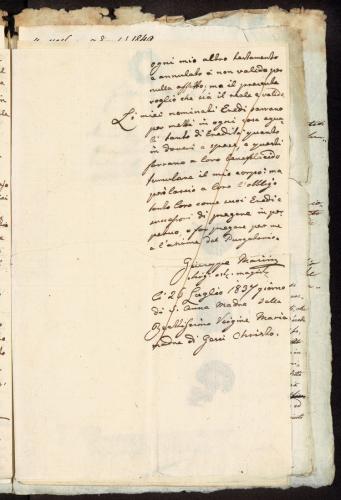 1840
ogni mio altro testamento
e annulato è non valido per
nullo effetto; ma il presente
voglio che sia il reale e valido
Li miei nominati Eredi saranno
per metti in ogni cosa egua
li tanto di Eredità, quanto
in dovari e spese, e questi
faranno a loro beneplacido
tumulare il mio corpo: ma
però lascio a loro l'obbligo
tanto loro come suoi Eredi e
sucessori di pregare in per
petuo, o far pregare per me
e l'anime del Purgatorio.
Giuseppe Marini
Li 26 Luglio 1837 giorno
di S. Anna Madre della
Beatissima Vergine Maria
madre di Gesù Christo.